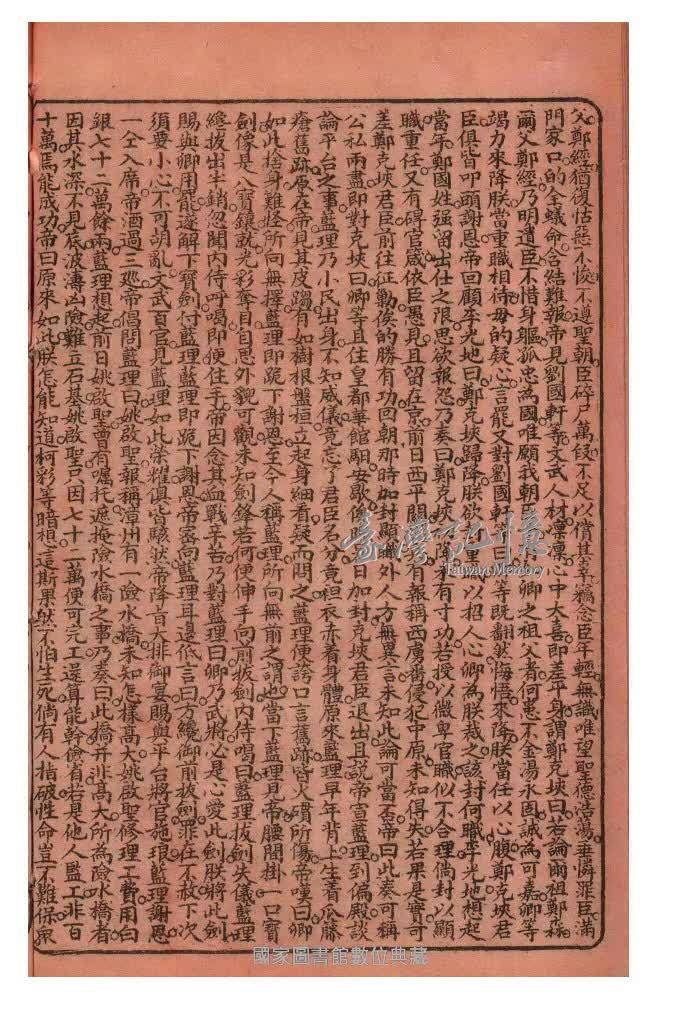 父鄭經猶復怙惡不悛不遵聖朝臣碎尸萬段不足以償其辜竊念臣年輕無識唯望聖德浩湯垂憐罪臣滿
門家口的全蟻命含結難報帝見劉國軒等文武人材凜凜心中大喜即差平身謂鄭克塽曰若論爾祖鄭森
爾父鄭經乃明遺臣不惜身軀孤忠為國唯願我朝臣 卿之祖父者何患不金湯永固誠為可嘉卿等
竭力來降朕當重職相待毋的疑心言罷又對劉國軒等曰 等既翻然悔悟來降朕當任以心腹鄭克塽君
臣俱皆叩頭謝恩帝回顧李光地曰鄭克塽歸降朕欲 重職以招人心卿為朕裁之該封何職李光地想起
當年鄭國姓强留出仕之限思欲報怨乃奏曰鄭克塽 降未有寸功若授以微卑官職似不合理倘封以顯
職重任又有碍官箴依臣愚見且留在京前日西平關 有報稱西虜番侵犯中原未知得失若果是實可
差鄭克塽君臣前往征勦俟的勝有功回朝那時加封顯職外人方無異言未知此論可當否帝曰此奏可稱
公私兩盡即對克塽曰卿等且住皇都華館駟安歇俟 日加封克塽君臣退出且說帝宣藍理到偏殿談
論平台之事藍理乃小民出身不知威儀竟忘了君臣名分竟袒衣赤着身體原來藍理早年背上生着瓜藤
瘡舊跡原在帝見其皮蹋有如樹根盤桓立起身細看疑而問之藍理便誇口言舊跡皆火礶所傷帝嘆曰卿
如此捨身難怪所向無擇藍理即跪下謝恩至今人稱藍理所向無前之謂也當下藍理見帝腰間掛一口寶
劍像是八寶鑲就光彩奪目自思外貌可觀未知劍鋒若何便伸手向前拔劍内侍喝曰藍理拔劍失儀藍理
纔拔出半銷忽聞内侍呼喝即便住手帝因念其血戰辛苦乃對藍理曰卿乃武將必是心愛此劍朕將此劍
賜與卿用罷遂解下寶劍付藍理藍理即跪下謝恩帝密向藍理耳邊低言曰方纔御前拔劍罪在不赦下次
須要小心不可胡亂文武百官見藍理如此榮耀俱皆駭狀帝降旨大排御宴賜與平台將官施琅藍理謝恩
一仝入席帝酒過三廵帝倡問藍理曰姚啟聖報稱漳州有一險水橋未知怎樣高大姚啟聖修理工費用白
銀七十二萬餘兩藍理想起前日姚啟聖曾有囑托遮掩險水橋之事乃奏曰此橋并非高大所為險水橋者
因其水深不見底波濤凶險難立石基姚啟聖只因七十二萬便可完工逞真能幹儉省若是他人監工非百
十萬焉能成功帝曰原來如此朕怎能知道柯彩等暗想這斯果然不怕生死倘有人指破性命豈不難保衆
臺灣記憶
Taiwan Memory
國家圖書館數位典藏